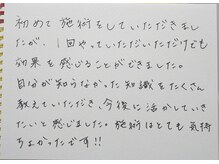 初めて施術をしていただきまし
たが、1回やっていただいただけでも
効果を感じることができました。
自分が知らなかった知識をたくさん
教えていただき、今後に活かしていき
たいと感じました。施術はとても気持
ちよかったです!!